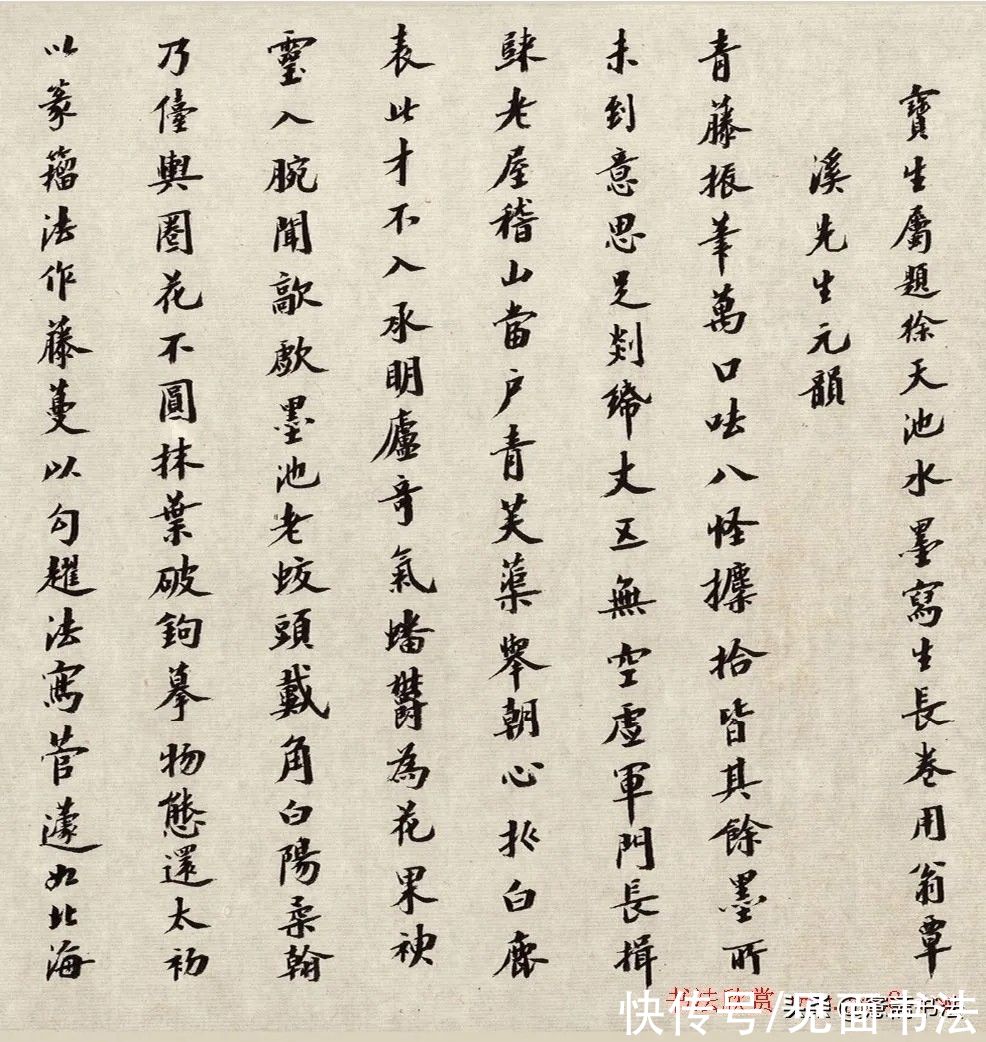 寶生屬題徐天池水墨寫生長卷用翁覃
溪先生元韻
青藤振筆萬口呿八怪攗拾皆其餘墨所
未到意思足剡綈丈五無空虛軍門長揖
歸老屋稽山當户青芙蕖舉朝心折白鹿
表此才不入承明廬奇氣蟠鬱為花果神
靈入腕聞歊歔墨池老蛟頭戴角白陽柔翰
乃儓輿圈花不圓抹葉破鉤摹物態還太初
以篆籀法作藤蔓以勾趯法寫菅蘧如北海
书法欣赏
快传号/见面书法